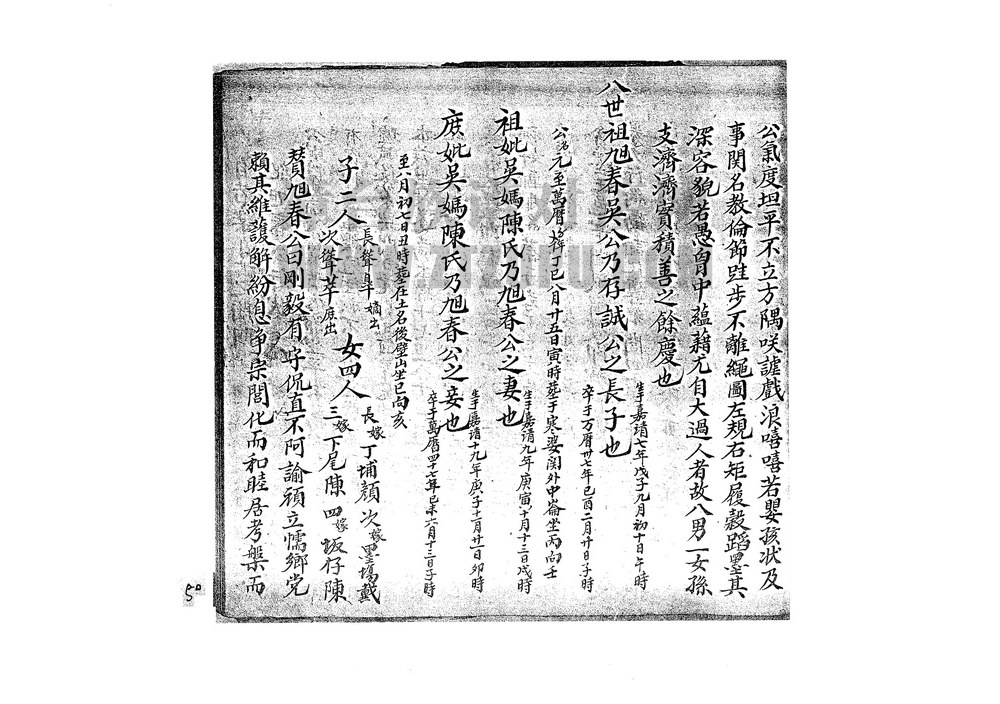 公氣度坦平不立方隅咲謔戲浪嘻嘻若嬰孩狀及
事関名教倫節跬步不離繩圖左規右矩履縠蹈墨其
深容貌若愚胷中蘊藉尤自大過人者故八男一女孫
支濟濟實積善之餘慶也
八世祖旭春吳公乃存誠公之長子也
生于嘉靖七年戊子九月初十日午時
卒于万曆卅七年己酉二月廿日子時
公元至萬曆丁巳八月廿五日寅時塟于寒婆関外中崙坐丙向壬
祖妣吳媽陳氏乃旭春公之妻也
生于嘉靖九年庚寅十月十三日戌時
庶妣吳媽陳氏乃旭春公之妾也
生于嘉靖十九年庚子十一月廿一日卯時
卒于萬曆四十七年己未六月十三日子時
至八月初七日丑時塟在土名後壁山坐巳向亥
子二人 長聳皐嫡出 次聳萃庶出
女四人 長嫁丁埔顏 次嫁墨塲戴
三嫁下尾陳 四嫁坂仔陳
賛旭春公曰剛毅有守侃直不阿諭頑立懦鄉党
賴其維護解紛息争宗閭化而和睦居考槃而
50